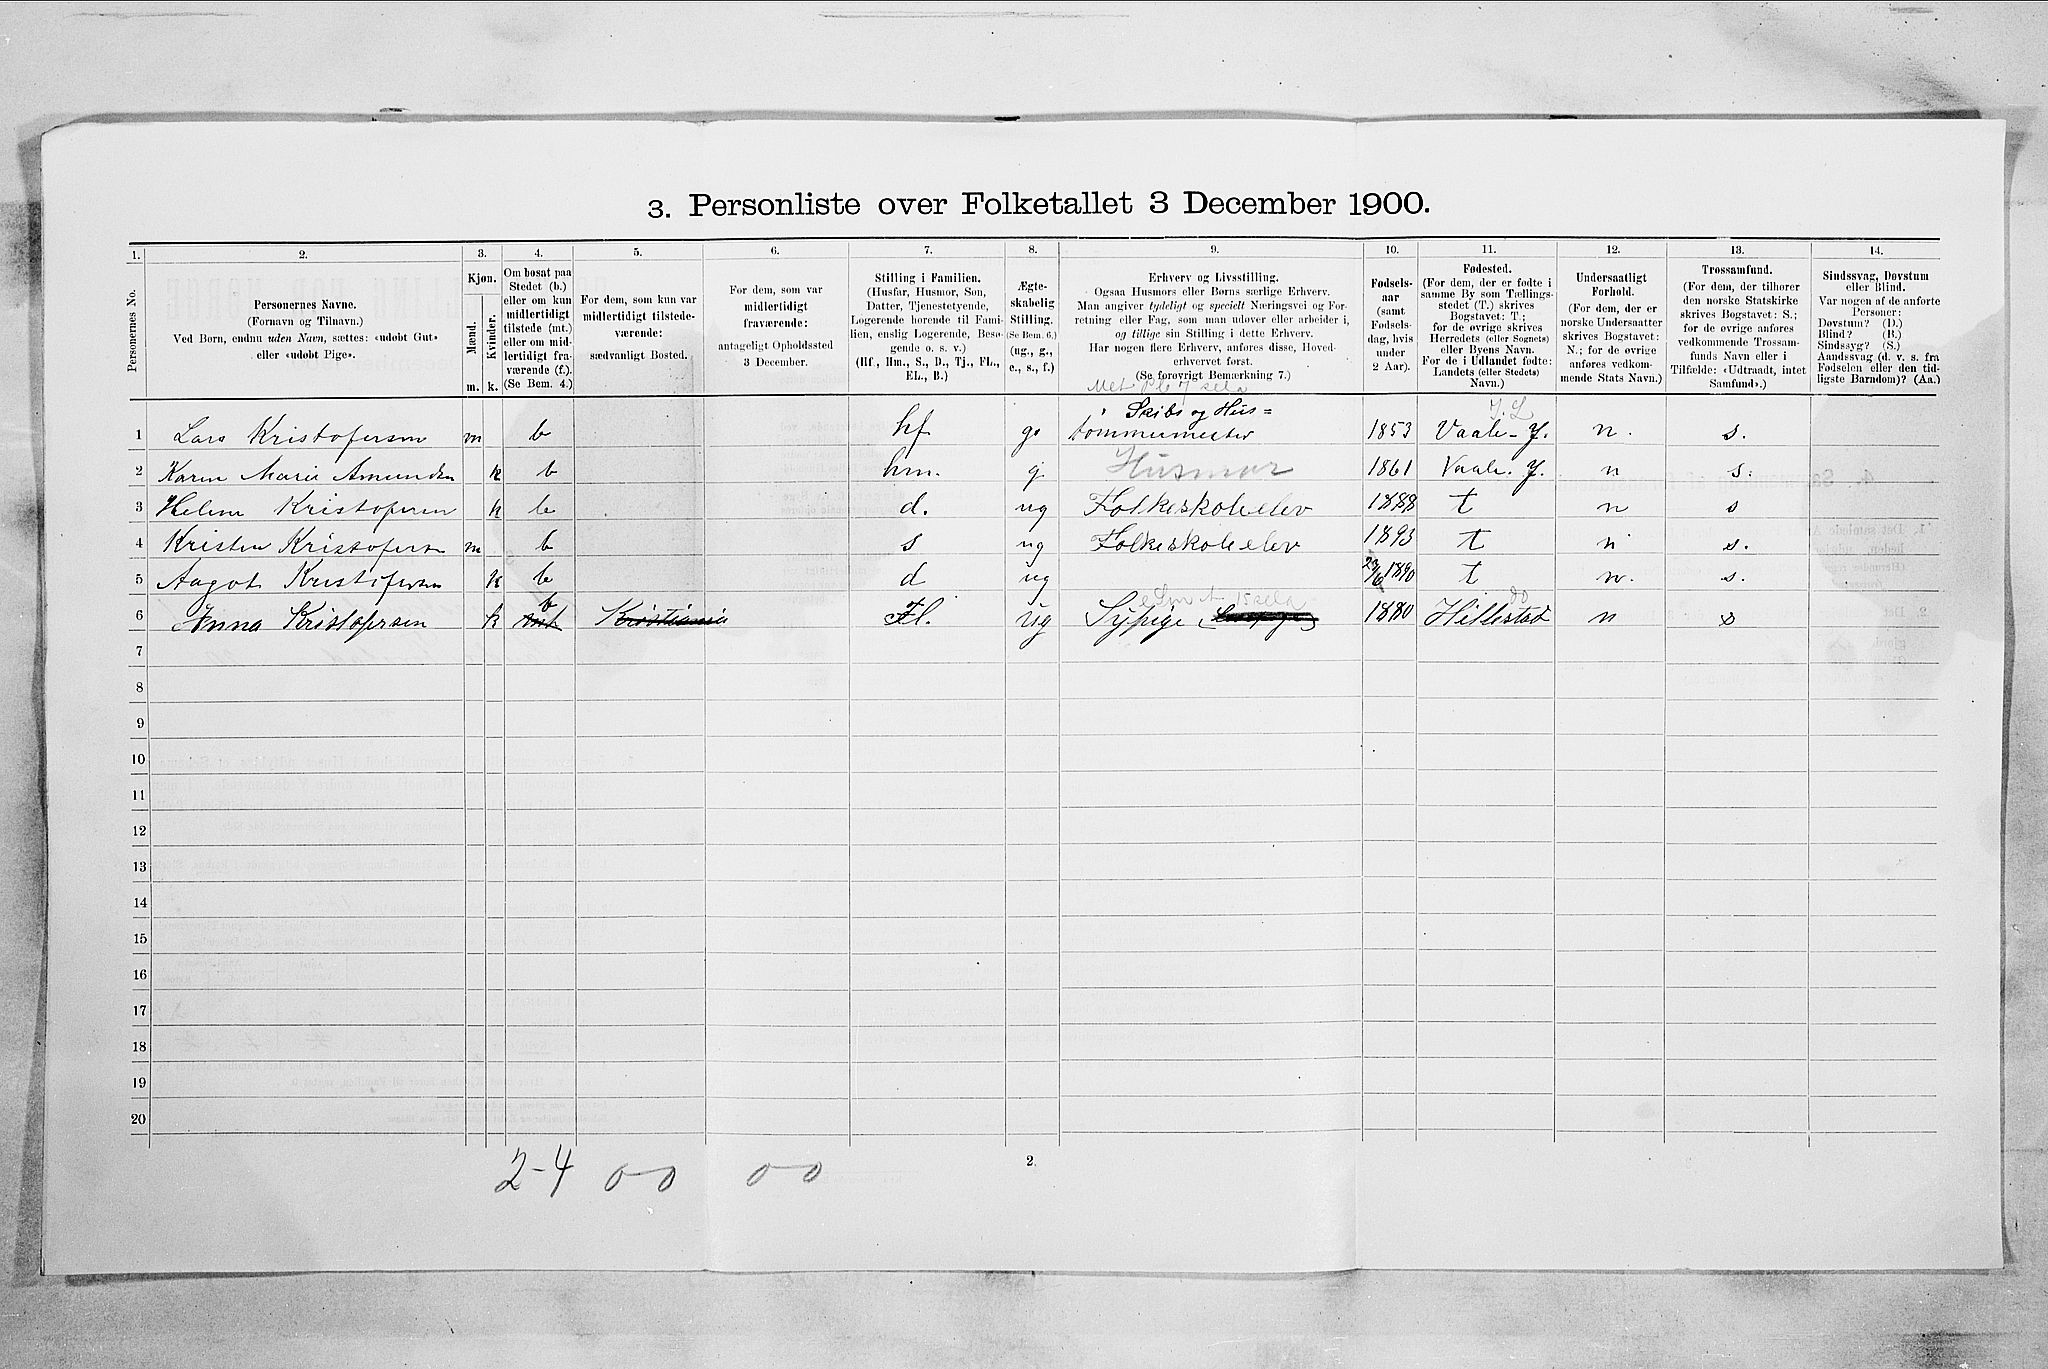 3. Personliste over Folketallet 3 December 1900.
1. 2. 3. 4. 5. 6. 7. 8. 9. 10. 11. 12. 13. 14.
Personernes No.
Personernes Navne.
(Fornavn og Tilnavn.)
Ved Børn, endnu uden Navn, sættes: «udøbt Gut»
eller «udøbt Pige».
Kjøn.
Mænd.
Kvinder.
m. k.
Om bosat paa
Stedet (b.)
eller om kun
midlertidigt
tilstede (mt.)
eller om mid-
lertidigt fra-
værende (f.).
(Se Bem. 4.)
For dem, som kun var
midlertidigt tilstede-
værende:
sædvanligt Bosted.
For dem, som var
midlertidigt
fraværende:
antageligt Opholdssted
3 December.
Stilling i Familien.
(Husfar, Husmor, Søn,
Datter, Tjenestetyende,
Logerende hørende til Fami-
lien, enslig Logerende, Besø-
gende o. s. v.)
(Hf., Hm., S., D., Tj., FL.,
EL., B.)
Ægte-
skabelig
Stilling.
(Se Bem. 6.)
(ug., g.,
e., s., f.)
Erhverv og Livsstilling.
Ogsaa Husmors eller Børns særlige Erhverv.
Man angiver tydeligt og specielt Næringsvei og For-
retning eller Fag, som man udøver eller arbeider i,
og tillige sin Stilling i dette Erhverv.
Har nogen flere Erhverv, anføres disse, Hoved-
erhvervet først.
(Se forøvrigt Bemærkning 7.)
Fødsels-
aar
(samt
Fødsels-
dag, hvis
under
2 Aar).
Fødested.
(For dem, der er fødte i
samme By som Tællings-
stedet (T.) skrives
Bogstavet: T.;
for de øvrige skrives
Herredets (eller Sognets)
eller Byens Navn.
For de i Udlandet fødte:
Landets (eller Stedets)
Navn.)
Undersaatligt
Forhold.
(For dem, der er
norske Undersaatter
skrives Bogstavet:
N.; for de øvrige
anføres vedkom-
mende Stats Navn.)
Trossamfund.
(For dem, der tilhører
den norske Statskirke
skrives Bogstavet: S.;
for de øvrige anføres
vedkommende Trossam-
funds Navn eller i
Tilfælde: «Udtraadt, intet
Samfund».)
Sindssvag, Døvstum
eller Blind.
Var nogen af de anførte
Personer:
Døvstum? (D.)
Blind? (B.)
Sindssyg? (S.)
Aandssvag (d. v. s. fra
Fødselen eller den tid-
ligste Barndom)? (Aa.)
Skibs og Hus=
1 Lars Kristofersen m b hf g tømmermester 1853 Vaale - J. n. s.
2 Karen Marie Amundsen k b hm. g Husmor 1861 Vaale. J. n s.
3 Helene Kristofersen k b d. ug Folkeskoleelev 1888 t n s
4 Kristen Kristofersen m b s ug Folkeskoleelev 1893 t n s.
5 Aagot Kristofersen k b d ug 1890 t n. s.
6 Anna Kristofersen k b mt Kristiania Fl. ug Sypige 1880 Hillestad n s
7
8
9
10
11
12
13
14
15
16
17
18
19
20
2-4 0-0 0-0
2.